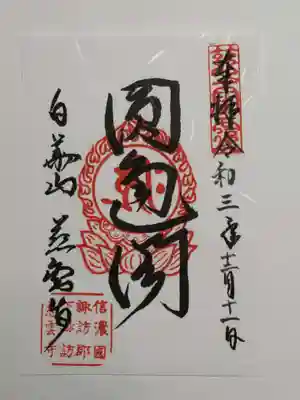 奉拝令和三年十二月十一日
圓通閣
白華山 慈雲寺
信濃國
諏訪郡
下諏訪
慈雲寺